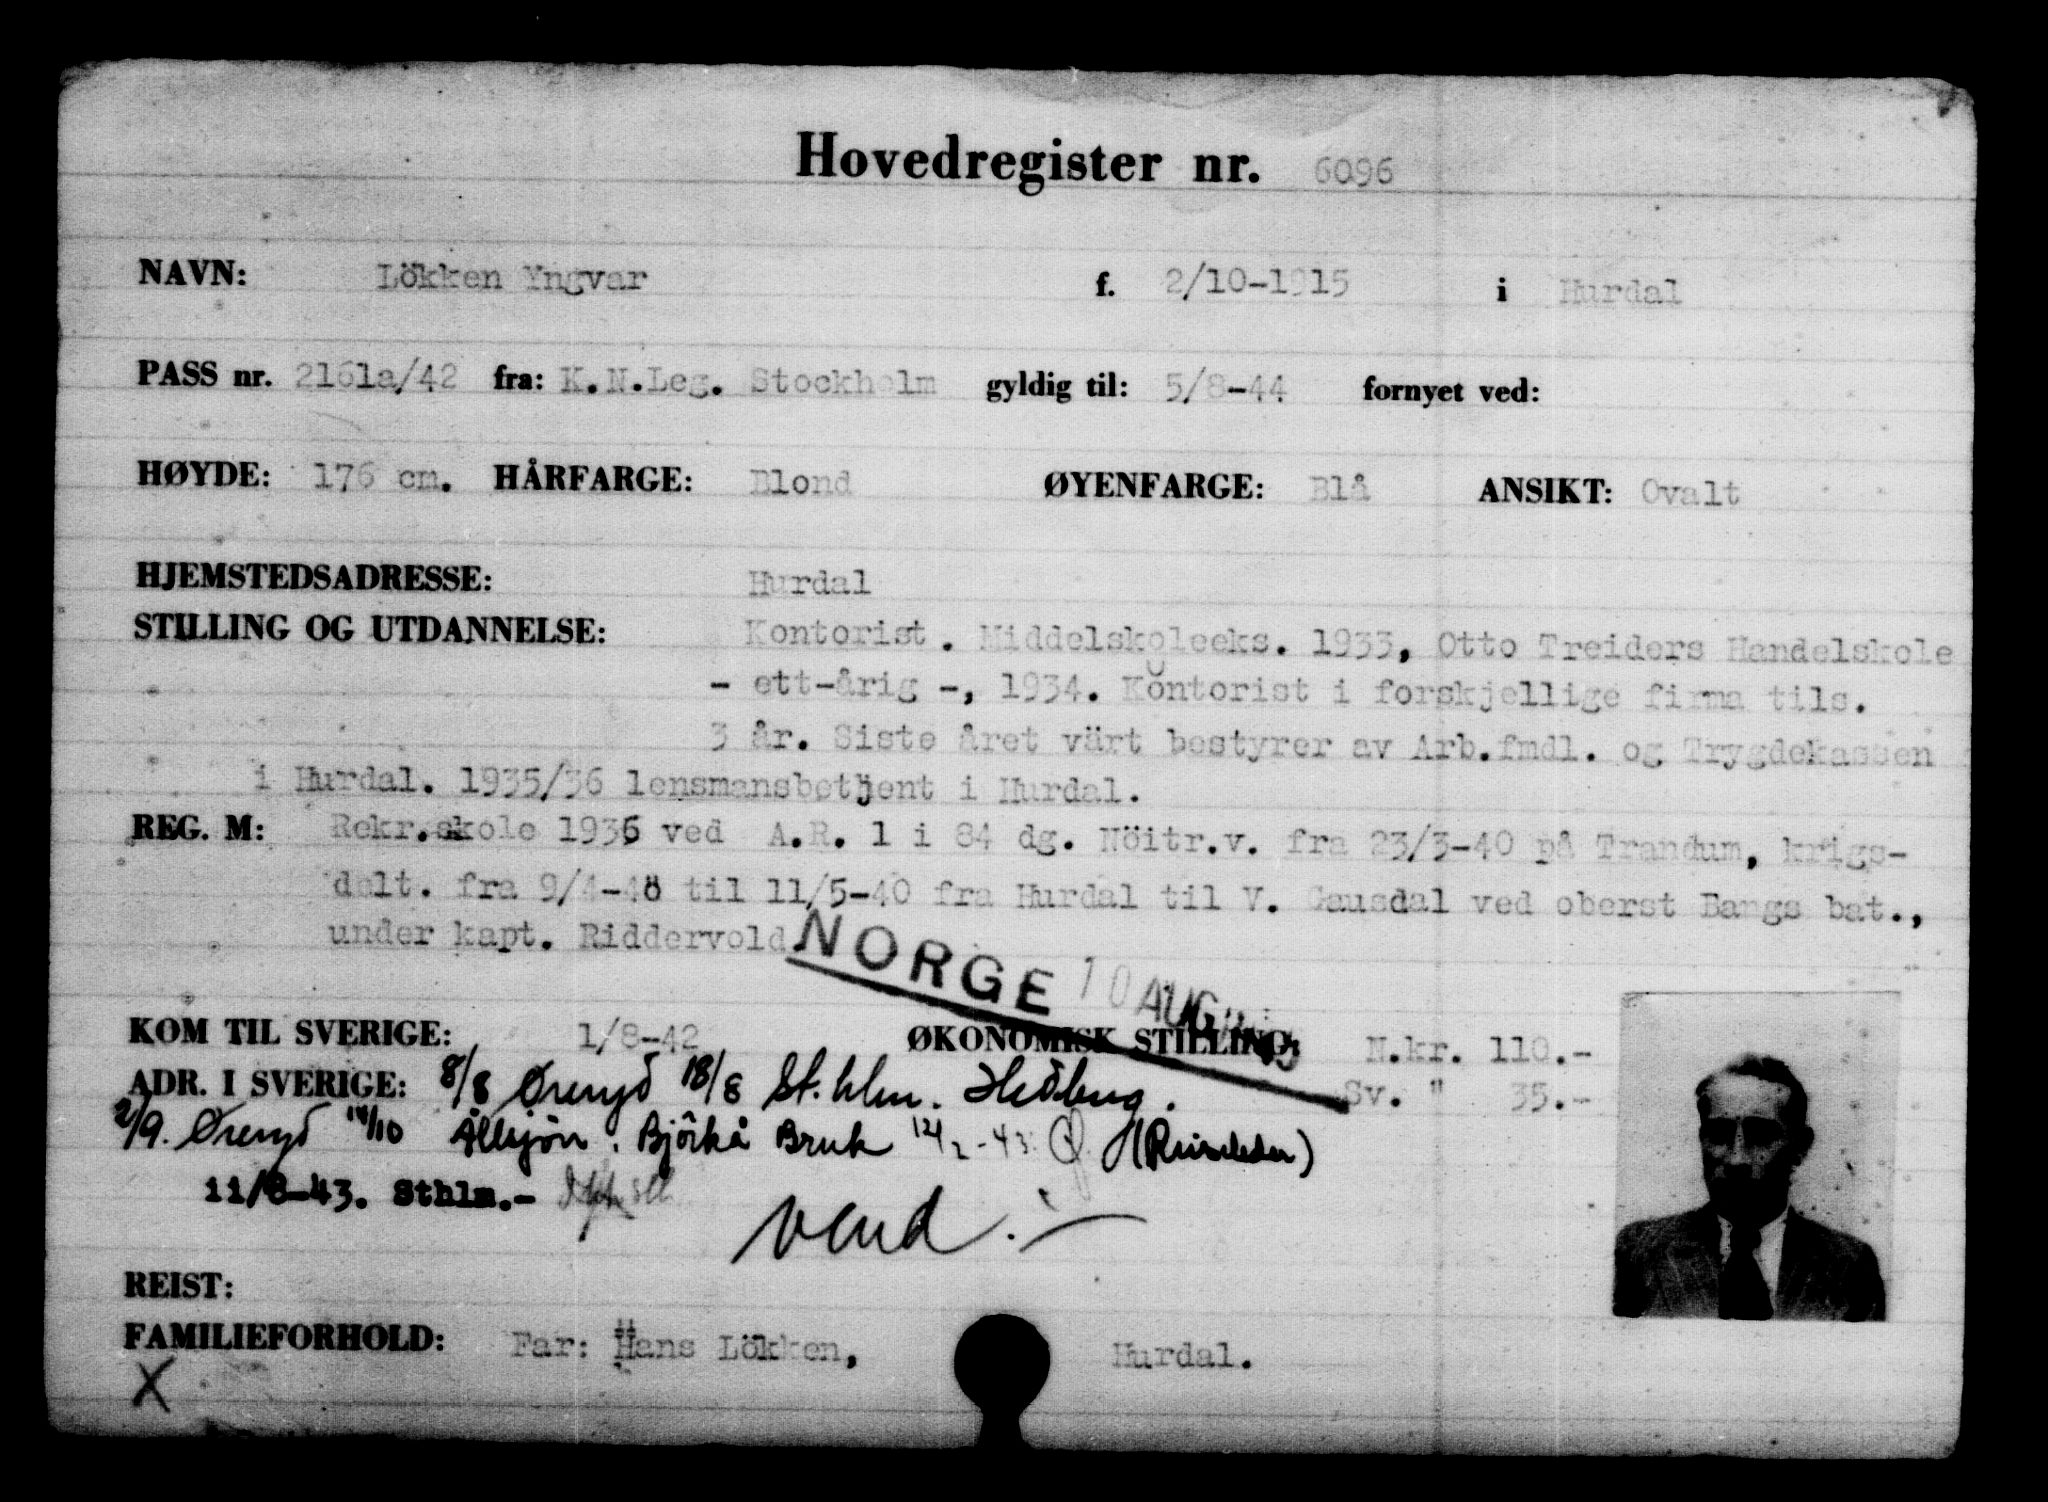 Hovedregister nr. 6096
NAVN: Lökken Yngvar f. 2/10-1915 i Hurdal
PASS nr. 2161a/42 fra: K.N.Leg. Stockholm gyldig til: 5/8-44 fornyet ved:
HØYDE: 176 cm. HÅRFARGE: Blond ØYENFARGE: Blå ANSIKT: Ovalt
HJEMSTEDSADRESSE: Hurdal
STILLING OG UTDANNELSE: Kontorist. Middelskoleeks. 1933, Otto Treiders Handelskole
- ett-årig -, 1934. Kontorist i forskjellige firma tils.
3 år. Siste året värt bestyrer av Arb.fmdl. og Trygdekassen
i Hurdal. 1935/36 lensmansbetjent i Hurdal.
REG. M: Rekr.skole 1936 ved A.R. 1 i 84 dg. Nöitr.v. fra 23/3-40 på Trandum, krigs-
delt. fra 9/4-40 til 11/5-40 fra Hurdal til V. Gausdal ved oberst Bangs bat.,
under kapt. Riddervold
NORGE 10 AUG
KOM TIL SVERIGE: 1/8-42 ØKONOMISK STILLING: N.kr. 110.-
ADR. I SVERIGE: 8/8 Øreryd 18/8 St.hlm. Hedberg. Sv. " 35.-
2/9. Øreryd 14/10 Ållsjön. Björkå Bruk 12/2-43.
11/8-43. Sthlm.-
vend.
REIST:
FAMILIEFORHOLD: Far: Hans Lökken, Hurdal.
X